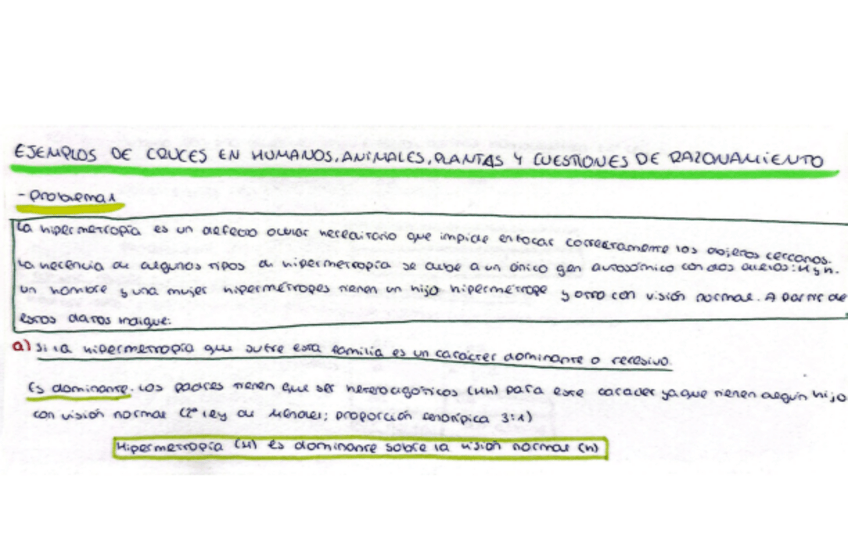 EJEMPLOS DE CRUCES EN HUMANOS, ANIMALES, PLANTAS Y CUESTIONES DE RAZONAMIENTO
- Problema 1
La hipermetropía es un defecto ocular hereditario que impide enfocar correctamente los objetos cercanos.
La herencia de algunos tipos de hipermetropía se debe a un único gen autosómico con dos alelos: H y h.
un hombre y una mujer hipermétropes tienen un hijo hipermétrope y otro con visión normal. A partir de
estos datos indique:
a) Si la hipermetropía que sufre esta familia es un carácter dominante o recesivo.
Es dominante. Los padres tienen que ser heterocigóticos (Hh) para este carácter ya que tienen algún hijo
con visión normal (2ª ley de Mendel; proporción fenotípica 3:1)
Hipermetropía (H) es dominante sobre la visión normal (h)